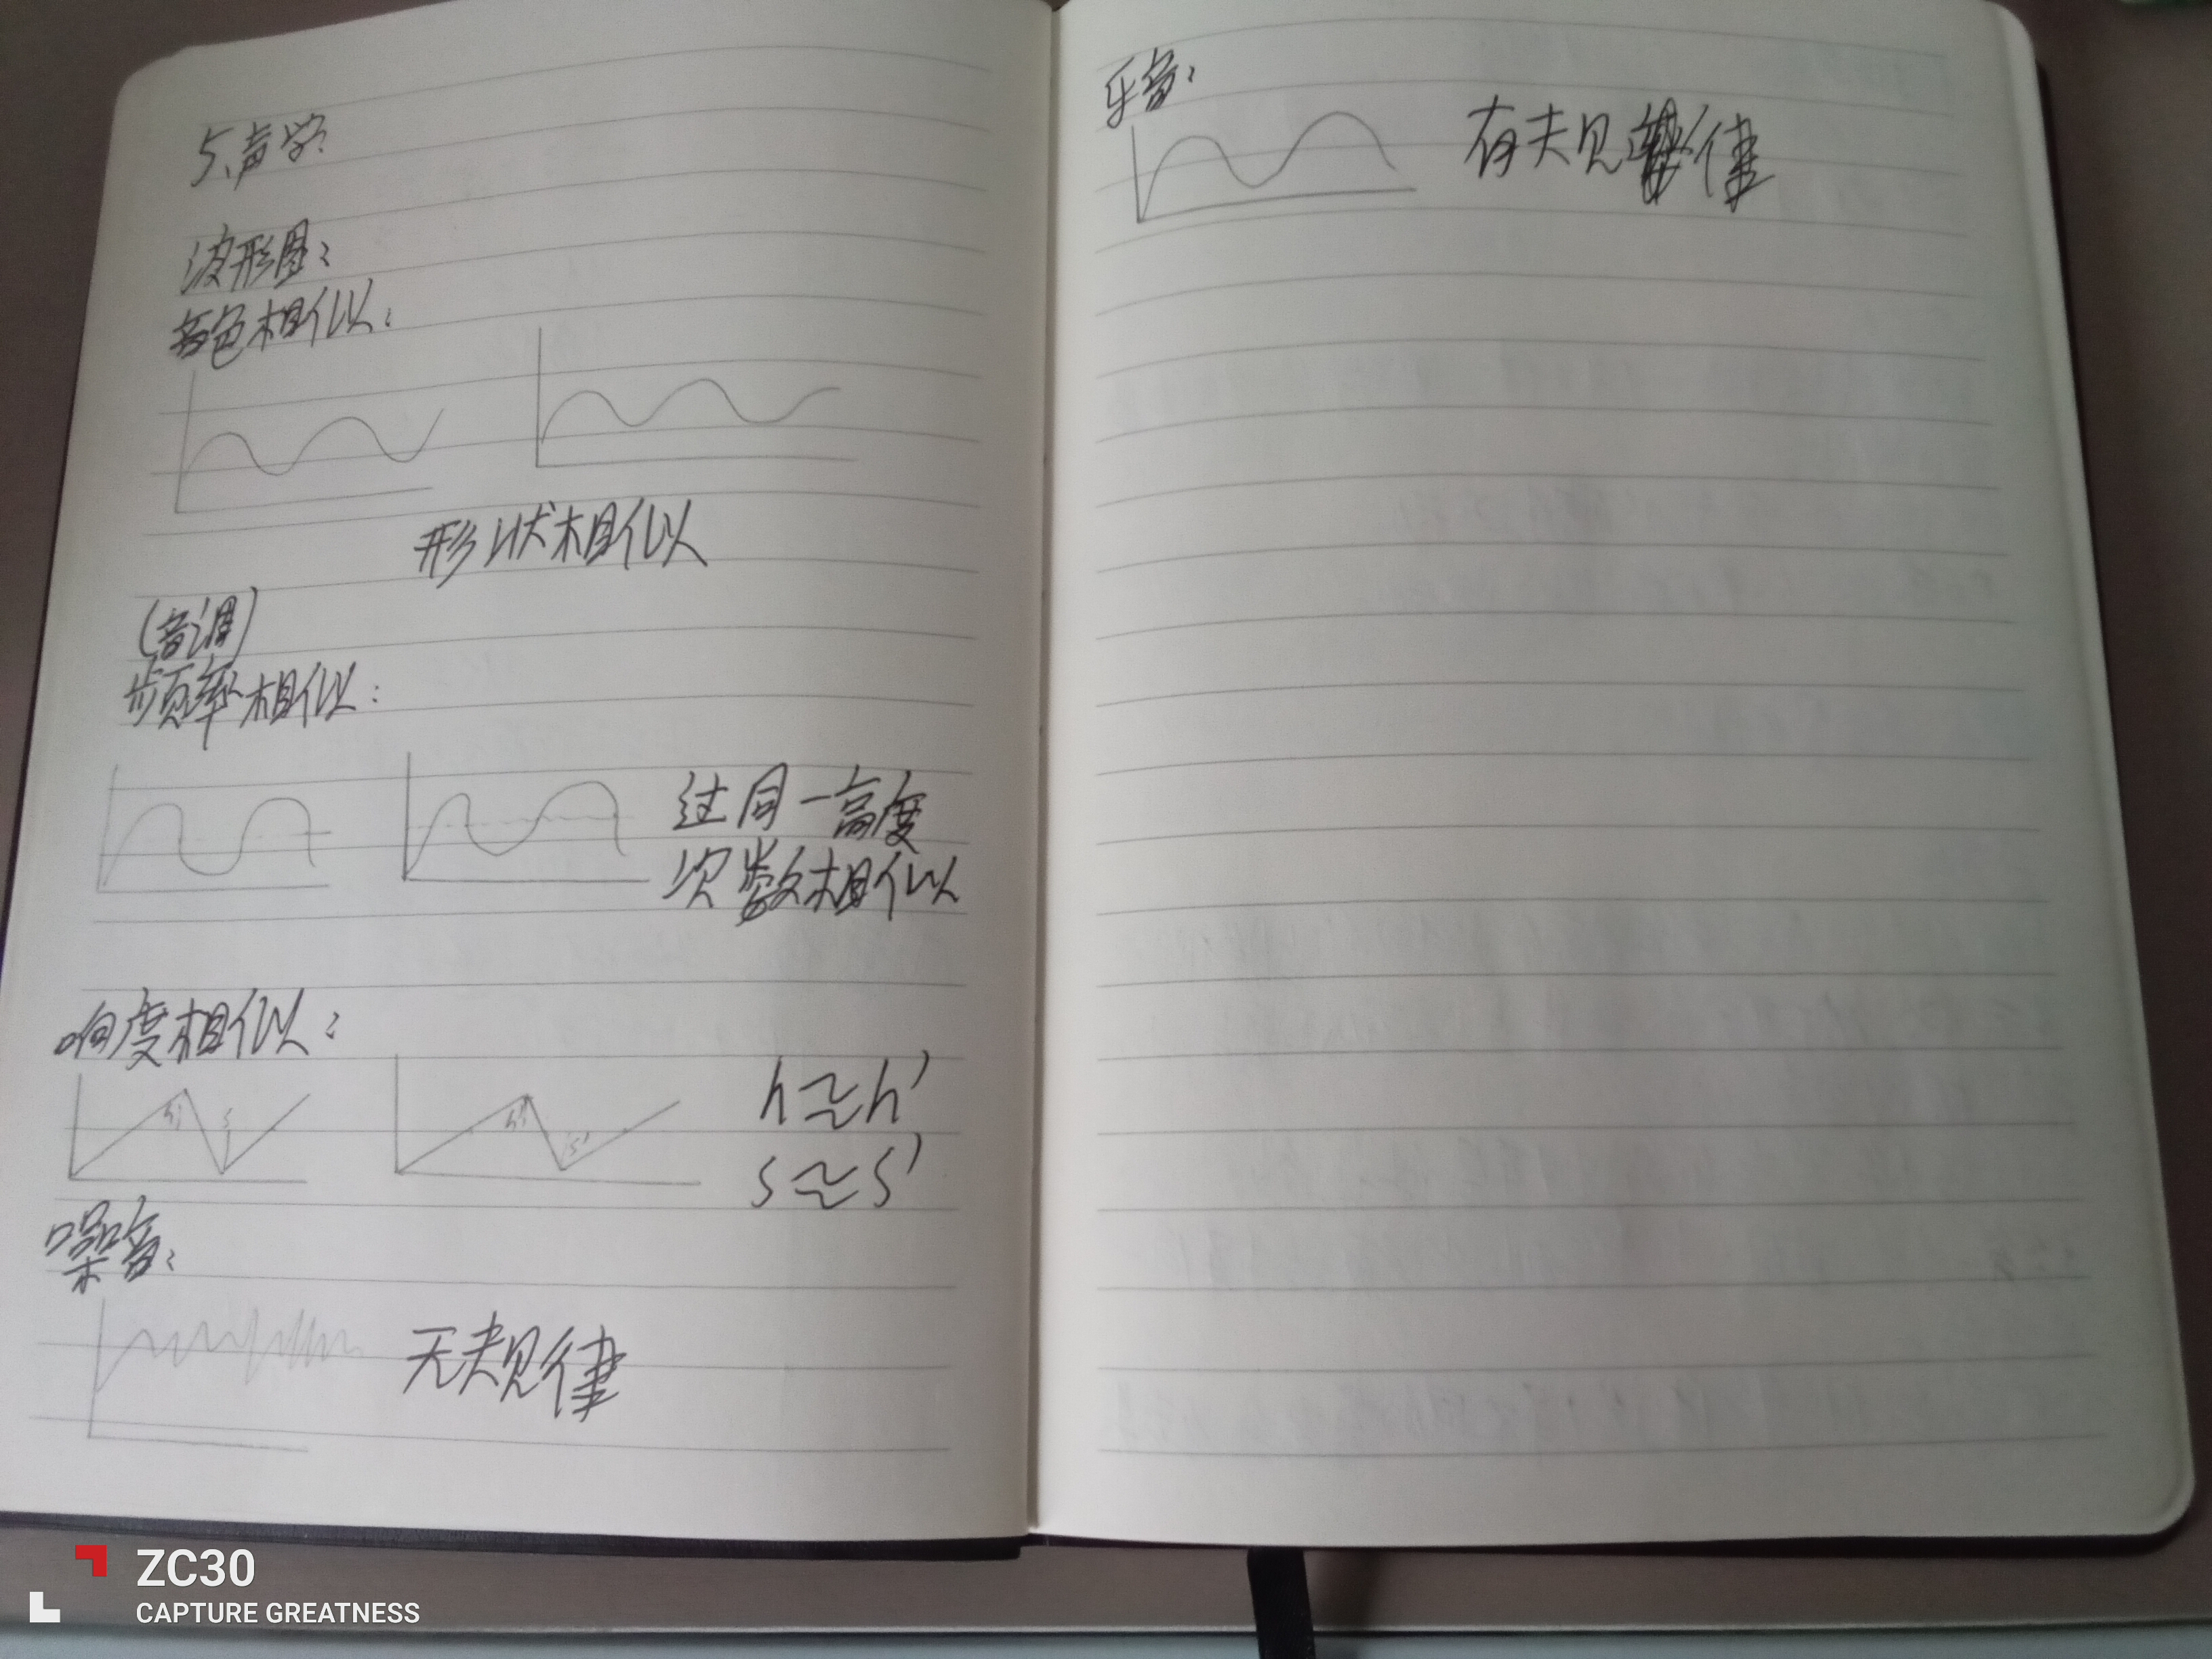 5、声学
波形图：
音色相似：
形状相似
(音调)
频率相似：
过同一高度
次数相似
响度相似：
h s
h' s'
h≈h'
s≈s'
噪音：
无规律
乐音：
有规律
ZC30
CAPTURE GREATNESS